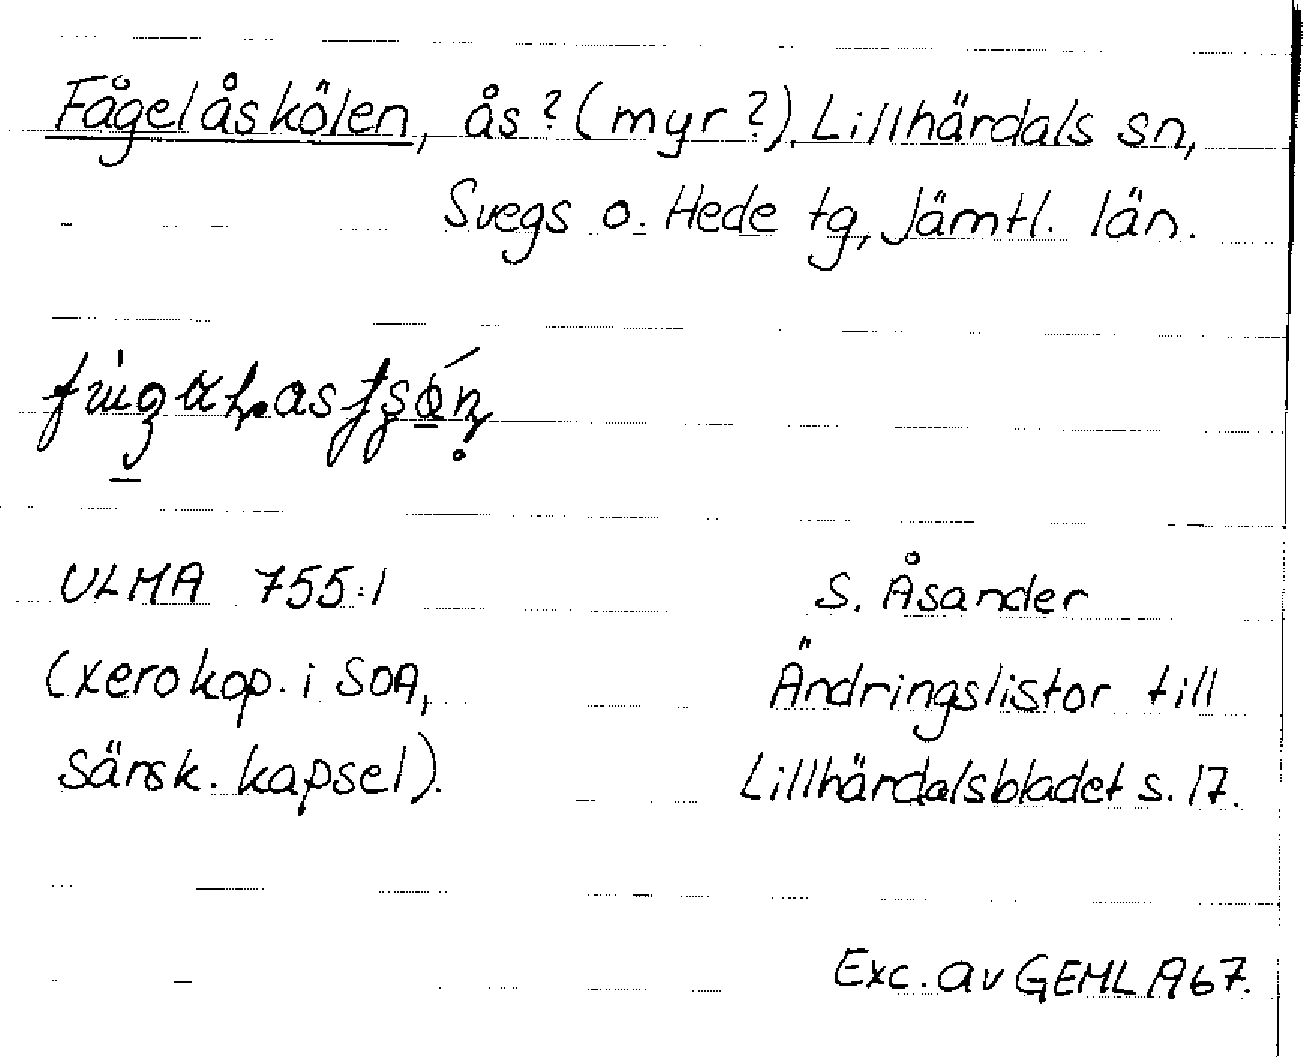 Fågelåskölen, ås? (myr?), Lillhärdals sn,
Svegs o. Hede tg, Jämtl. län.
ULMA 755:1
S. Åsander
(xerokop. i SOA,
Ändringslistor till
särsk. kapsel).
Lillhärdalsbladet s. 17.
Exc. av GEHL A67.